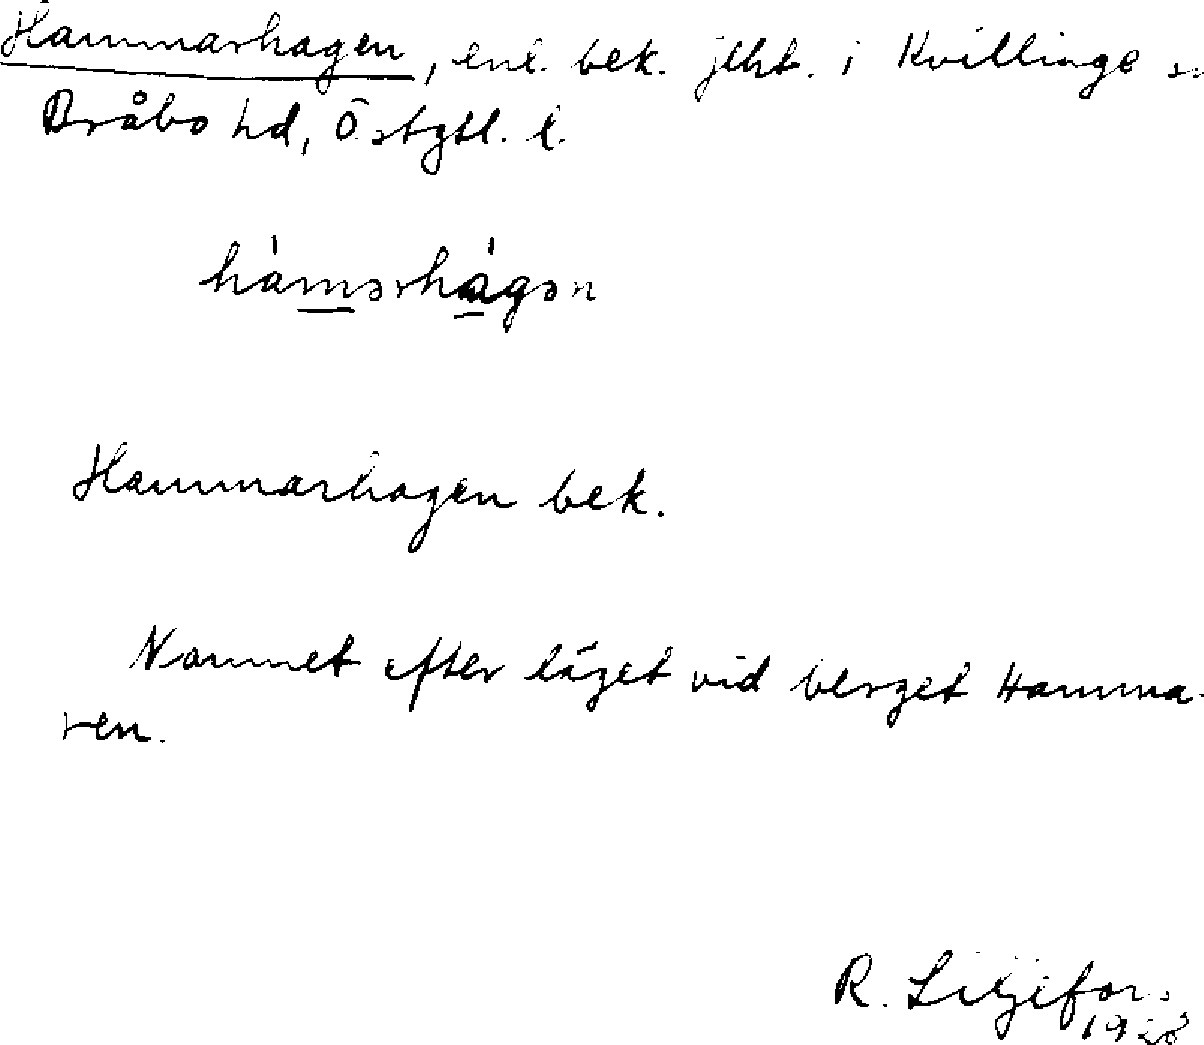 Hammarhagen, enl. bek. jlht. i Kvillinge sn
Bråbo hd, Östgtl. l.
hàmərhàgən
Hammarhagen bek.
Namnet efter läget vid berget Hamma-
ren.
R. Liljefors
1928